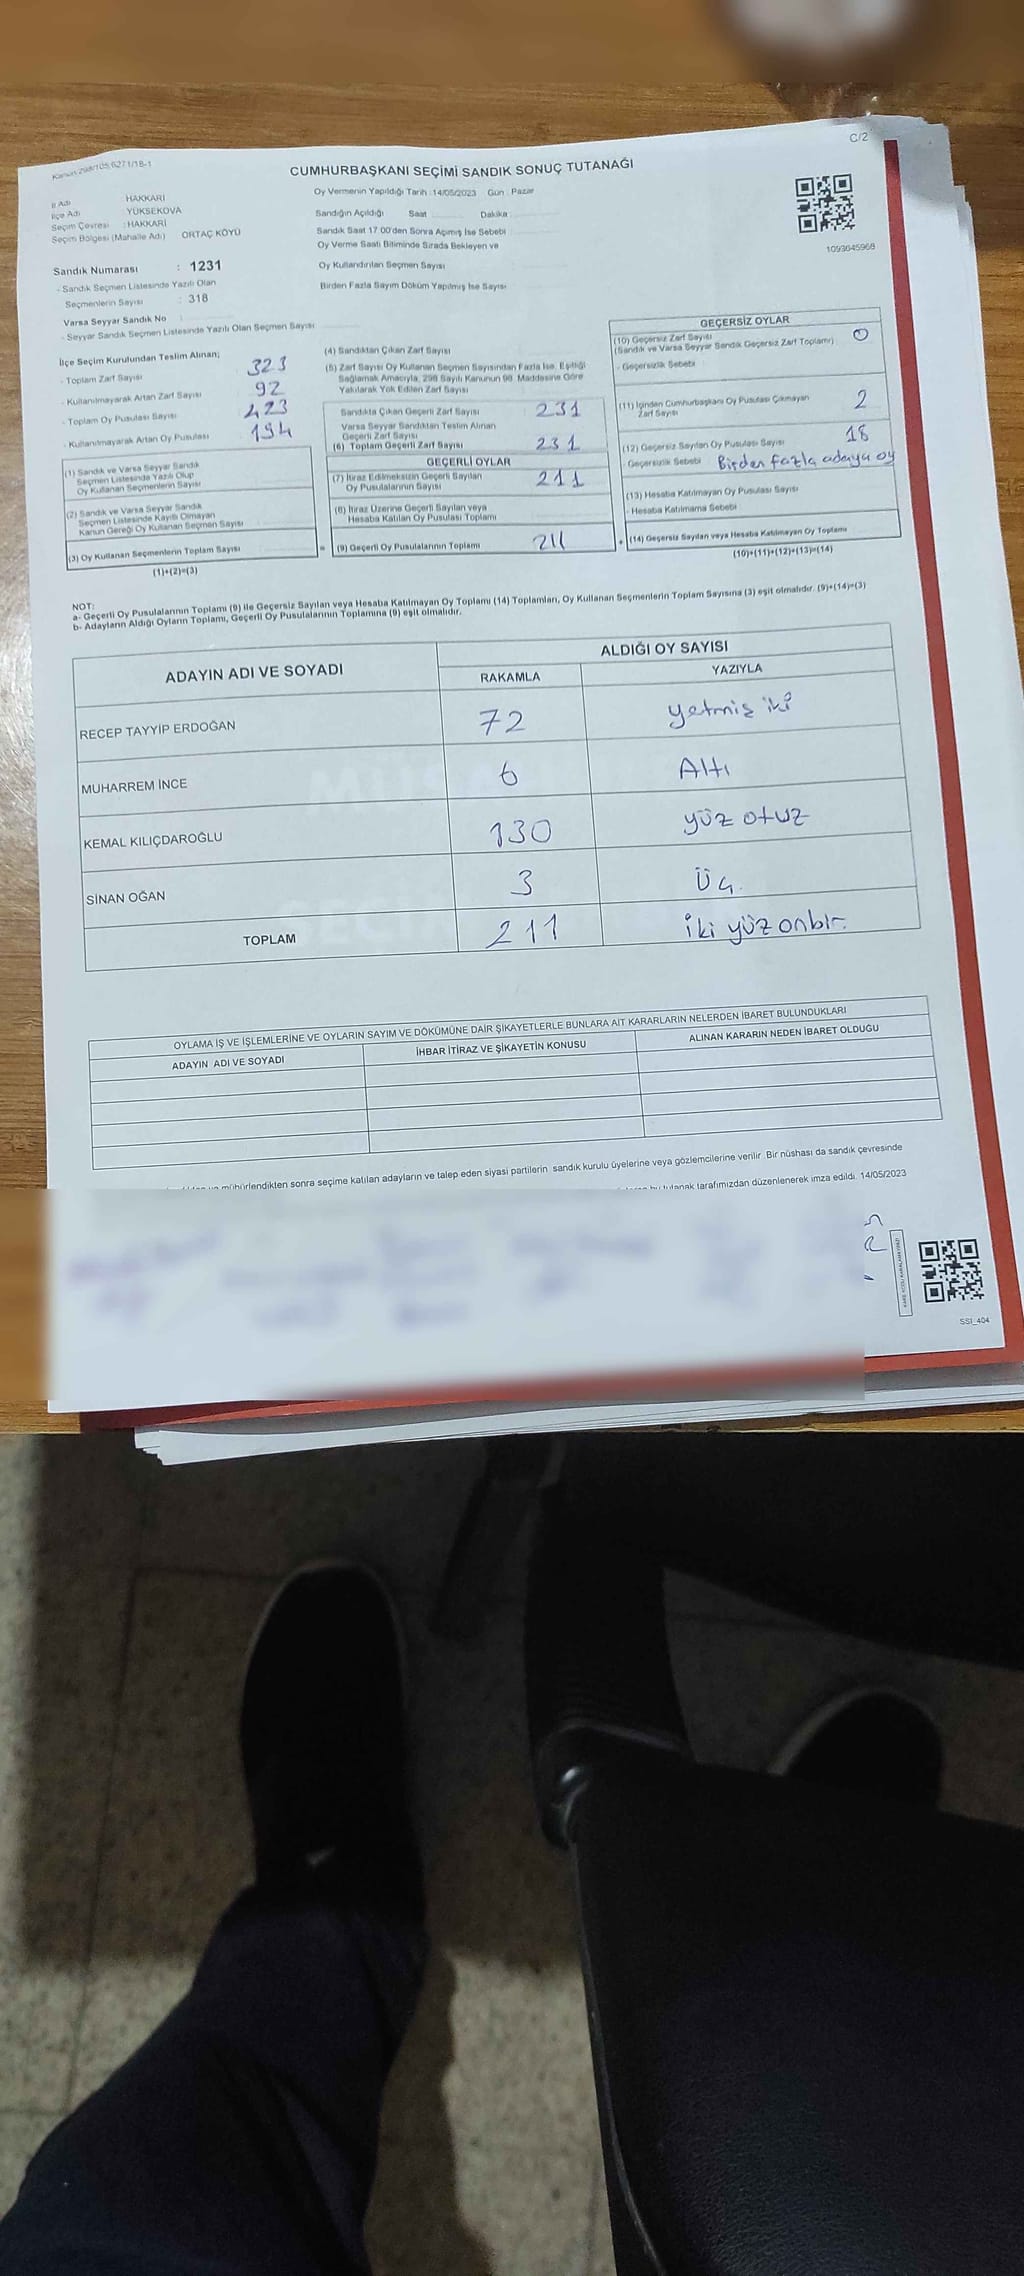 C/2
Kanun:298/105;6271/18-1
CUMHURBAŞKANI SEÇİMİ SANDIK SONUÇ TUTANAĞI
İl Adı HAKKARİ
İlçe Adı YÜKSEKOVA
Seçim Çevresi : HAKKARİ
Seçim Bölgesi (Mahalle Adı) ORTAÇ KÖYÜ
Sandık Numarası : 1231
- Sandık Seçmen Listesinde Yazılı Olan
Seçmenlerin Sayısı : 318
Varsa Seyyar Sandık No
- Seyyar Sandık Seçmen Listesinde Yazılı Olan Seçmen Sayısı
Oy Vermenin Yapıldığı Tarih : 14/05/2023 Gün : Pazar
Sandığın Açıldığı Saat Dakika
Sandık Saat 17:00'den Sonra Açılmış İse Sebebi
Oy Verme Saati Bitiminde Sırada Bekleyen ve
Oy Kullandırılan Seçmen Sayısı
Birden Fazla Sayım Döküm Yapılmış İse Sayısı
1093645968
İlçe Seçim Kurulundan Teslim Alınan;
- Toplam Zarf Sayısı 323
- Kullanılmayarak Artan Zarf Sayısı 92
- Toplam Oy Pusulası Sayısı 423
- Kullanılmayarak Artan Oy Pusulası 194
(1) Sandık ve Varsa Seyyar Sandık
Seçmen Listesinde Yazılı Olup
Oy Kullanan Seçmenlerin Sayısı
(2) Sandık ve Varsa Seyyar Sandık
Seçmen Listesinde Kayıtlı Olmayan
Kanun Gereği Oy Kullanan Seçmen Sayısı
(3) Oy Kullanan Seçmenlerin Toplam Sayısı
(1)+(2)=(3)
(4) Sandıktan Çıkan Zarf Sayısı
(5) Zarf Sayısı Oy Kullanan Seçmen Sayısından Fazla İse, Eşitliği
Sağlamak Amacıyla, 298 Sayılı Kanunun 98. Maddesine Göre
Yakılarak Yok Edilen Zarf Sayısı
Sandıkta Çıkan Geçerli Zarf Sayısı 231
Varsa Seyyar Sandıktan Teslim Alınan
Geçerli Zarf Sayısı
(6) Toplam Geçerli Zarf Sayısı 231
GEÇERLİ OYLAR
(7) İtiraz Edilmeksizin Geçerli Sayılan
Oy Pusulalarının Sayısı 211
(8) İtiraz Üzerine Geçerli Sayılan veya
Hesaba Katılan Oy Pusulası Toplamı
= (9) Geçerli Oy Pusulalarının Toplamı 211
GEÇERSİZ OYLAR
(10) Geçersiz Zarf Sayısı 0
(Sandık ve Varsa Seyyar Sandık Geçersiz Zarf Toplamı)
- Geçersizlik Sebebi
(11) İçinden Cumhurbaşkanı Oy Pusulası Çıkmayan
Zarf Sayısı 2
(12) Geçersiz Sayılan Oy Pusulası Sayısı 18
- Geçersizlik Sebebi Birden fazla adaya oy
(13) Hesaba Katılmayan Oy Pusulası Sayısı
- Hesaba Katılmama Sebebi
+ (14) Geçersiz Sayılan veya Hesaba Katılmayan Oy Toplamı
(10)+(11)+(12)+(13)=(14)
NOT:
a- Geçerli Oy Pusulalarının Toplamı (9) ile Geçersiz Sayılan veya Hesaba Katılmayan Oy Toplamı (14) Toplamları, Oy Kullanan Seçmenlerin Toplam Sayısına (3) eşit olmalıdır. (9)+(14)=(3)
b- Adayların Aldığı Oyların Toplamı, Geçerli Oy Pusulalarının Toplamına (9) eşit olmalıdır.
ADAYIN ADI VE SOYADI ALDIĞI OY SAYISI
RAKAMLA YAZIYLA
RECEP TAYYİP ERDOĞAN 72 yetmiş iki
MUHARREM İNCE 6 Altı
KEMAL KILIÇDAROĞLU 130 yüz otuz
SİNAN OĞAN 3 Üç.
TOPLAM 211 iki yüz onbir
OYLAMA İŞ VE İŞLEMLERİNE VE OYLARIN SAYIM VE DÖKÜMÜNE DAİR ŞİKAYETLERLE BUNLARA AİT KARARLARIN NELERDEN İBARET BULUNDUKLARI
ADAYIN ADI VE SOYADI İHBAR İTİRAZ VE ŞİKAYETİN KONUSU ALINAN KARARIN NEDEN İBARET OLDUĞU
mühürlendikten sonra seçime katılan adayların ve talep eden siyasi partilerin sandık kurulu üyelerine veya gözlemcilerine verilir. Bir nüshası da sandık çevresinde
bu tutanak tarafımızdan düzenlenerek imza edildi. 14/05/2023
SSI_404